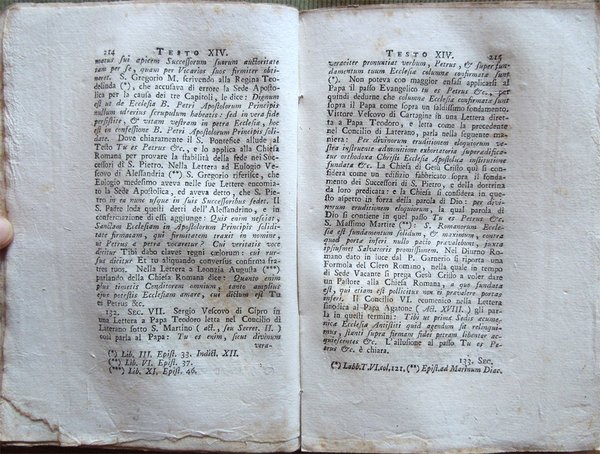 214 TESTO XIV.
matus sui apicem Successorum suorum auctoritate
tam per se, quam per Vicarios suos firmiter obti-
neret. S. Gregorio M. scrivendo alla Regina Teo-
delinda (*), che accusava di errore la Sede Aposto-
lica per la causa dei tre Capitoli, le dice: Dignum
est ut de Ecclesia B. Petri Apostolorum Principis
nullum ulterius scrupulum habeatis: sed in vera fide
persistite, & vitam vestram in petra Ecclesiæ, hoc
est in confessione B. Petri Apostolorum Principis solidate.
Dove chiaramente il S. Pontefice allude al
Testo Tu es Petrus &c., e lo applica alla Chiesa
Romana per provare la stabilità della fede nei Suc-
cessori di S. Pietro. Nella Lettera ad Eulogio Ves-
covo di Alessandria (**) S. Gregorio riferisce, che
Eulogio medesimo aveva nelle sue Lettere encomia-
ta la Sede Apostolica, ed aveva detto, che S. Pie-
tro in ea nunc usque in suis Successoribus sedet. Il
S. Padre loda questi detti dell' Alessandrino, e in
confermazione di essi aggiunge: Quis enim nesciat
Sanctam Ecclesiam in Apostolorum Principis solidi-
tate firmatam, qui firmitatem traxit in nomine,
ut Petrus a petra vocaretur? Cui veritatis voce
dicitur Tibi dabo claves regni cælorum: cui rur-
sus dicitur Et tu aliquando conversus confirma fra-
tres tuos. Nella Lettera a Leonzia Augusta (***)
parlando della Chiesa Romana dice: Quanto enim
plus timetis Conditorem omnium, tanto amplius
ejus potestis Ecclesiam amare, cui dictum est Tu
es Petrus &c.
132. SEC. VII. Sergio Vescovo di Cipro in
una Lettera a Papa Teodoro letta nel Concilio di
Laterano sotto S. Martino (Act., seu Secret. II.)
così parla al Papa: Tu es enim, sicut divinum
vera-
(*) Lib. III. Epist. 33. Indict. XII.
(**) Lib. VI. Epist. 37.
(***) Lib. XI, Epist. 46.
TESTO XIV. 215
veraciter pronuntiat verbum, Petrus, & super fun-
damentum tuum Ecclesiæ columnæ confirmatæ sunt
(*). Non poteva con maggior enfasi applicarsi al
Papa il passo Evangelico tu es Petrus &c., per-
quindi dedurne che columnæ Ecclesiæ confirmatæ sunt
sopra il Papa come sopra un saldissimo fondamento.
Vittore Vescovo di Cartagine in una Lettera diret-
ta a Papa Teodoro, e letta come la precedente
nel Concilio di Laterano, parla nella seguente ma-
niera: Per divinorum eruditionem eloquiorum ve-
stra irreprehensibili adunatione exhortatoria superædifica-
tur orthodoxa Christi Ecclesia Apostolica institutione
fundata &c. La Chiesa di Gesù Cristo quì si con-
sidera come un edifizio fabbricato sopra il fonda-
mento dei Successori di S. Pietro, e della dottrina
da loro predicata: e la Chiesa si considera in que-
sto aspetto in forza della parola di Dio: per di-
vinorum eruditionem eloquiorum, la qual parola di
Dio si contiene in quel passo Tu es Petrus &c.
S. Massimo Martire (**): S. Romanorum Eccle-
sia est fundamentum solidum, & immotum, contra
quod porta inferi nullo pacto prævalebunt, juxta
ipsius Salvatoris promissionem. Nel Diurno Ro-
mano dato in luce dal P. Garnerio si riporta una
Formola del Clero Romano, nella quale in tempo
di Sede Vacante si prega Gesù Cristo a voler dare
un Pastore alla Chiesa Romana, a quo fundata
est, qui etiam est pollicitus non ei prævalere portas
inferi. Il Concilio VI. ecumenico nella Lettera
sinodica al Papa Agatone (Act. XVIII.) gli par-
la in questi termini: Tibi ut primæ Sedis ecume-
nicæ Ecclesiæ Antistiti quid agendum sit relinqui-
mus, stanti supra firmam fidei petram libenter ac-
quiescentes &c. L'allusione al passo Tu es Pe-
trus &c. è chiara.
133. SEC.
(*) Labb. T. VI. col. 121. (**) Epist. ad Marinum Diac.